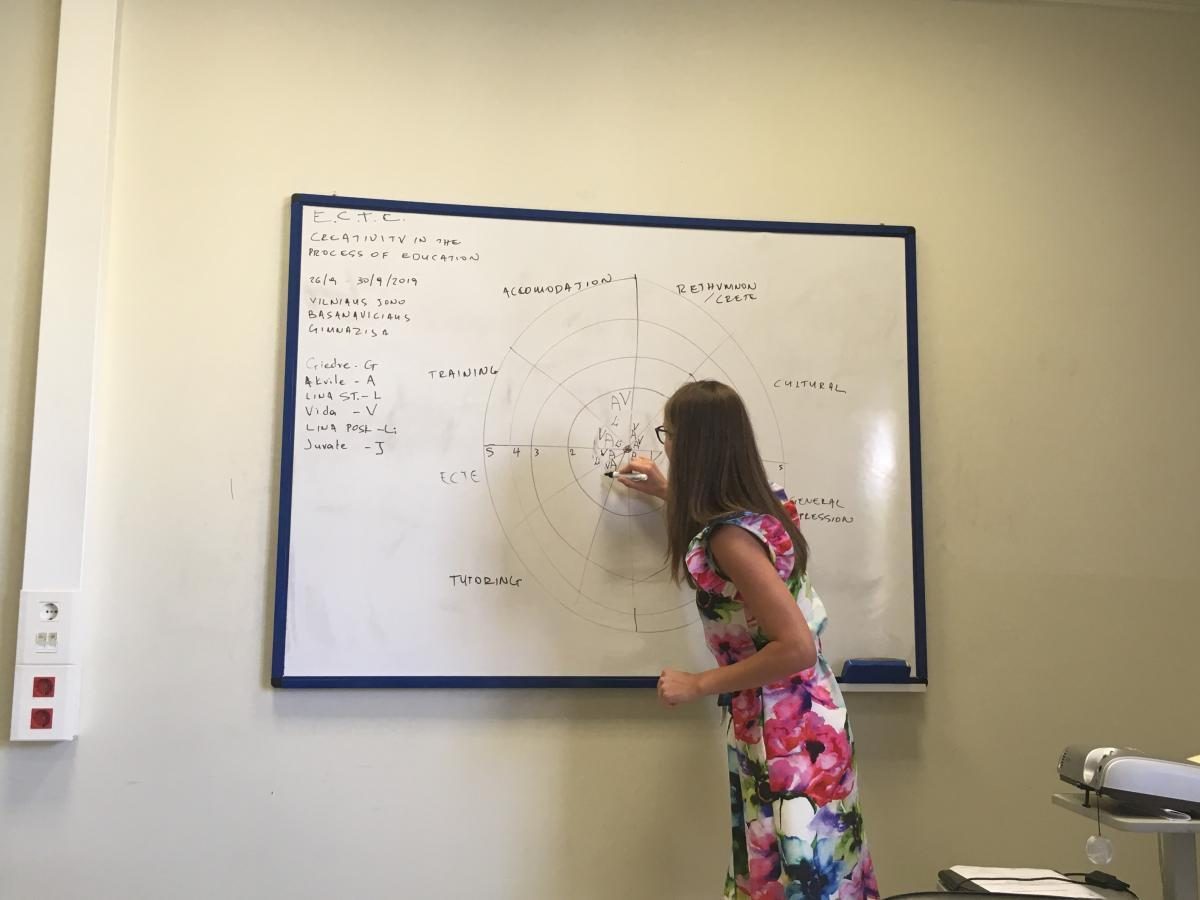 E.C.T.E.
CREATIVITY IN THE
PROCESS OF EDUCATION
26/9 - 30/9/2019
VILNIAUS JONO
BASANAVICIAUS
GIMNAZIJA
Giedre - G
Akvile - A
LINA ST. - L
Vida - V
LINA POSK - Li
Jurate - J
ACCOMODATION
RETHYMNON
/CRETE
TRAINING
CULTURAL
AV
L
5 4 3 2
5
ECTE
GENERAL
PRESSION
TUTORING